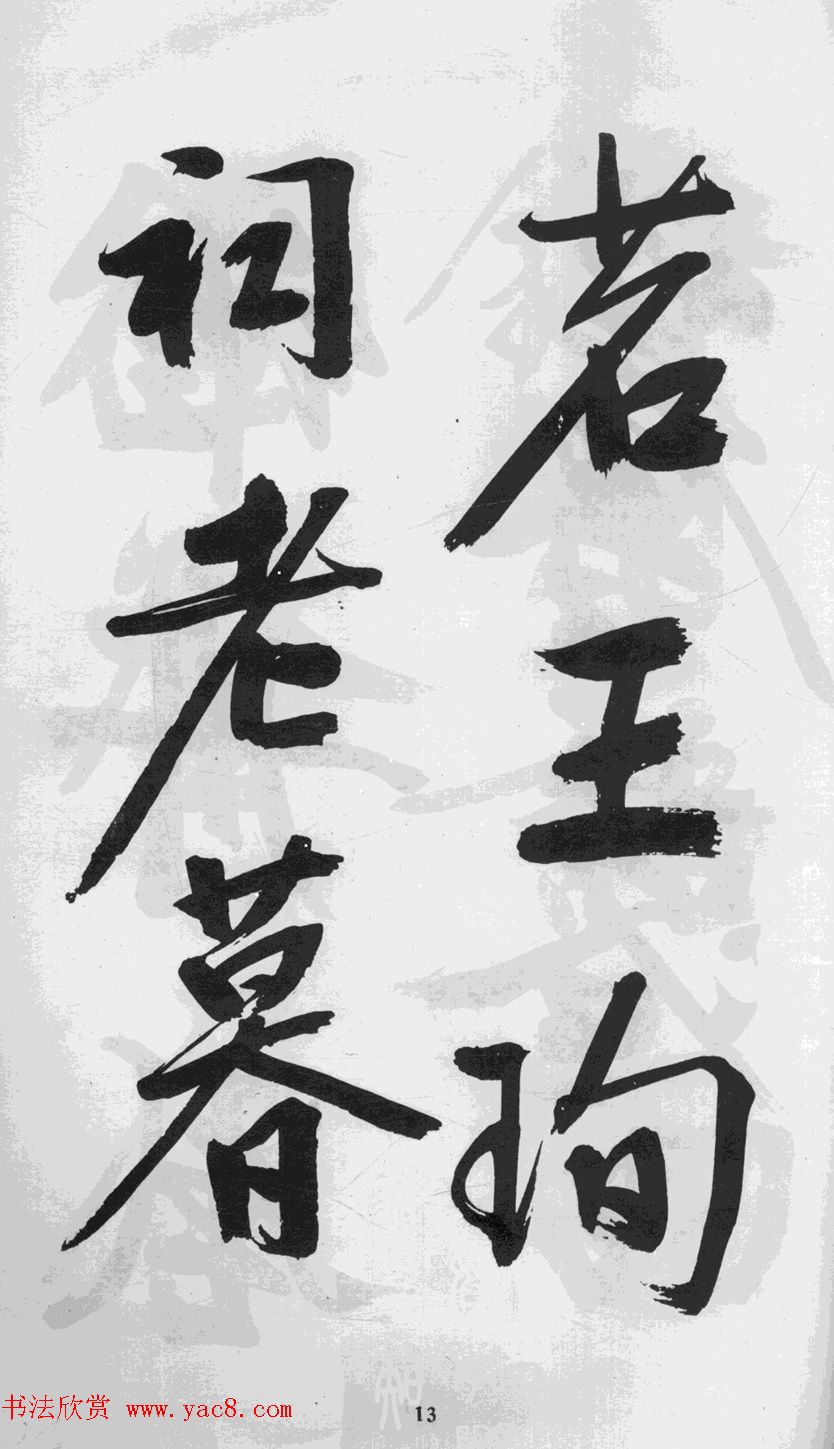 若王珣
祠老暮
书法欣赏 www.yac8.com
13